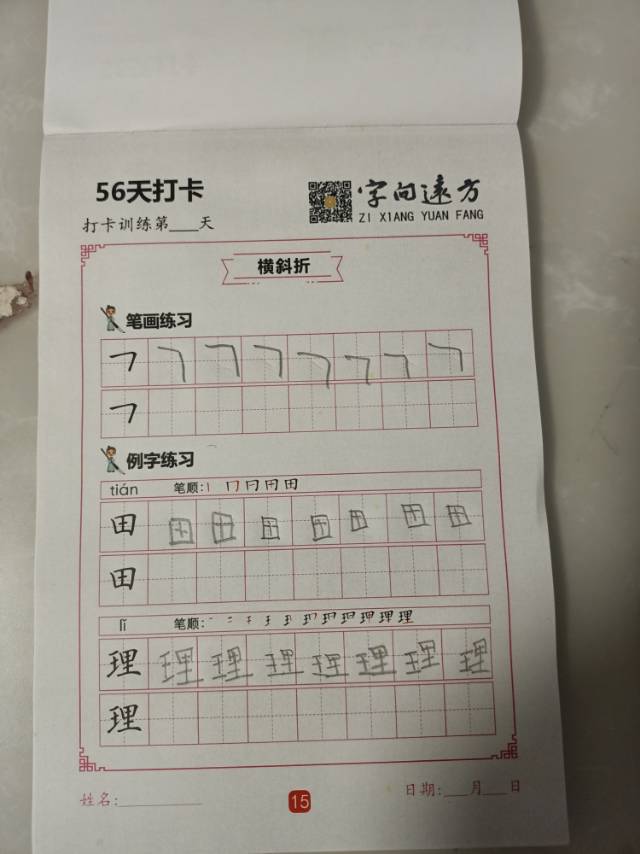 56天打卡
字问远方
打卡训练第___天
ZI XIANG YUAN FANG
横斜折
笔画练习
㇕ ㇕ ㇕ ㇕ ㇕ ㇕ ㇕ ㇕
㇕
例字练习
tián 笔顺:丨 冂 冃 用 田
田 田 田 田 田 田 田 田
田
lǐ 笔顺:
理 理 理 理 理 理 理 理
理
姓名:________
15
日期:___月___日